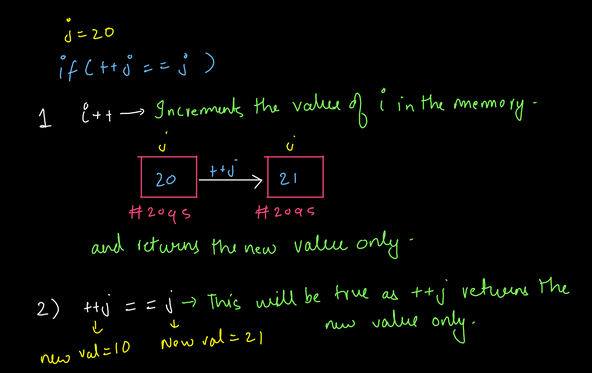 j = 20
if ( ++j == j )
1 i++ → Increments the value of i in the memory.
j j
20 ++j 21
#2095 #2095
and returns the new value only.
2) ++j == j → This will be true as ++j returns the
new value only.
new val = 10 New val = 21